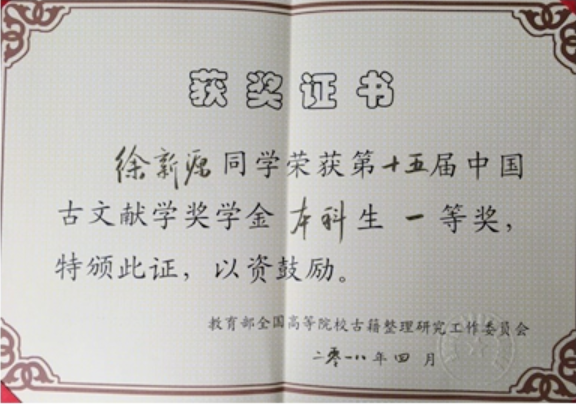 获奖证书
徐新源同学荣获第十五届中国
古文献学奖学金 本科生 一等奖，
特颁此证，以资鼓励。
教育部全国高等院校古籍整理研究工作委员会
二零一八年四月